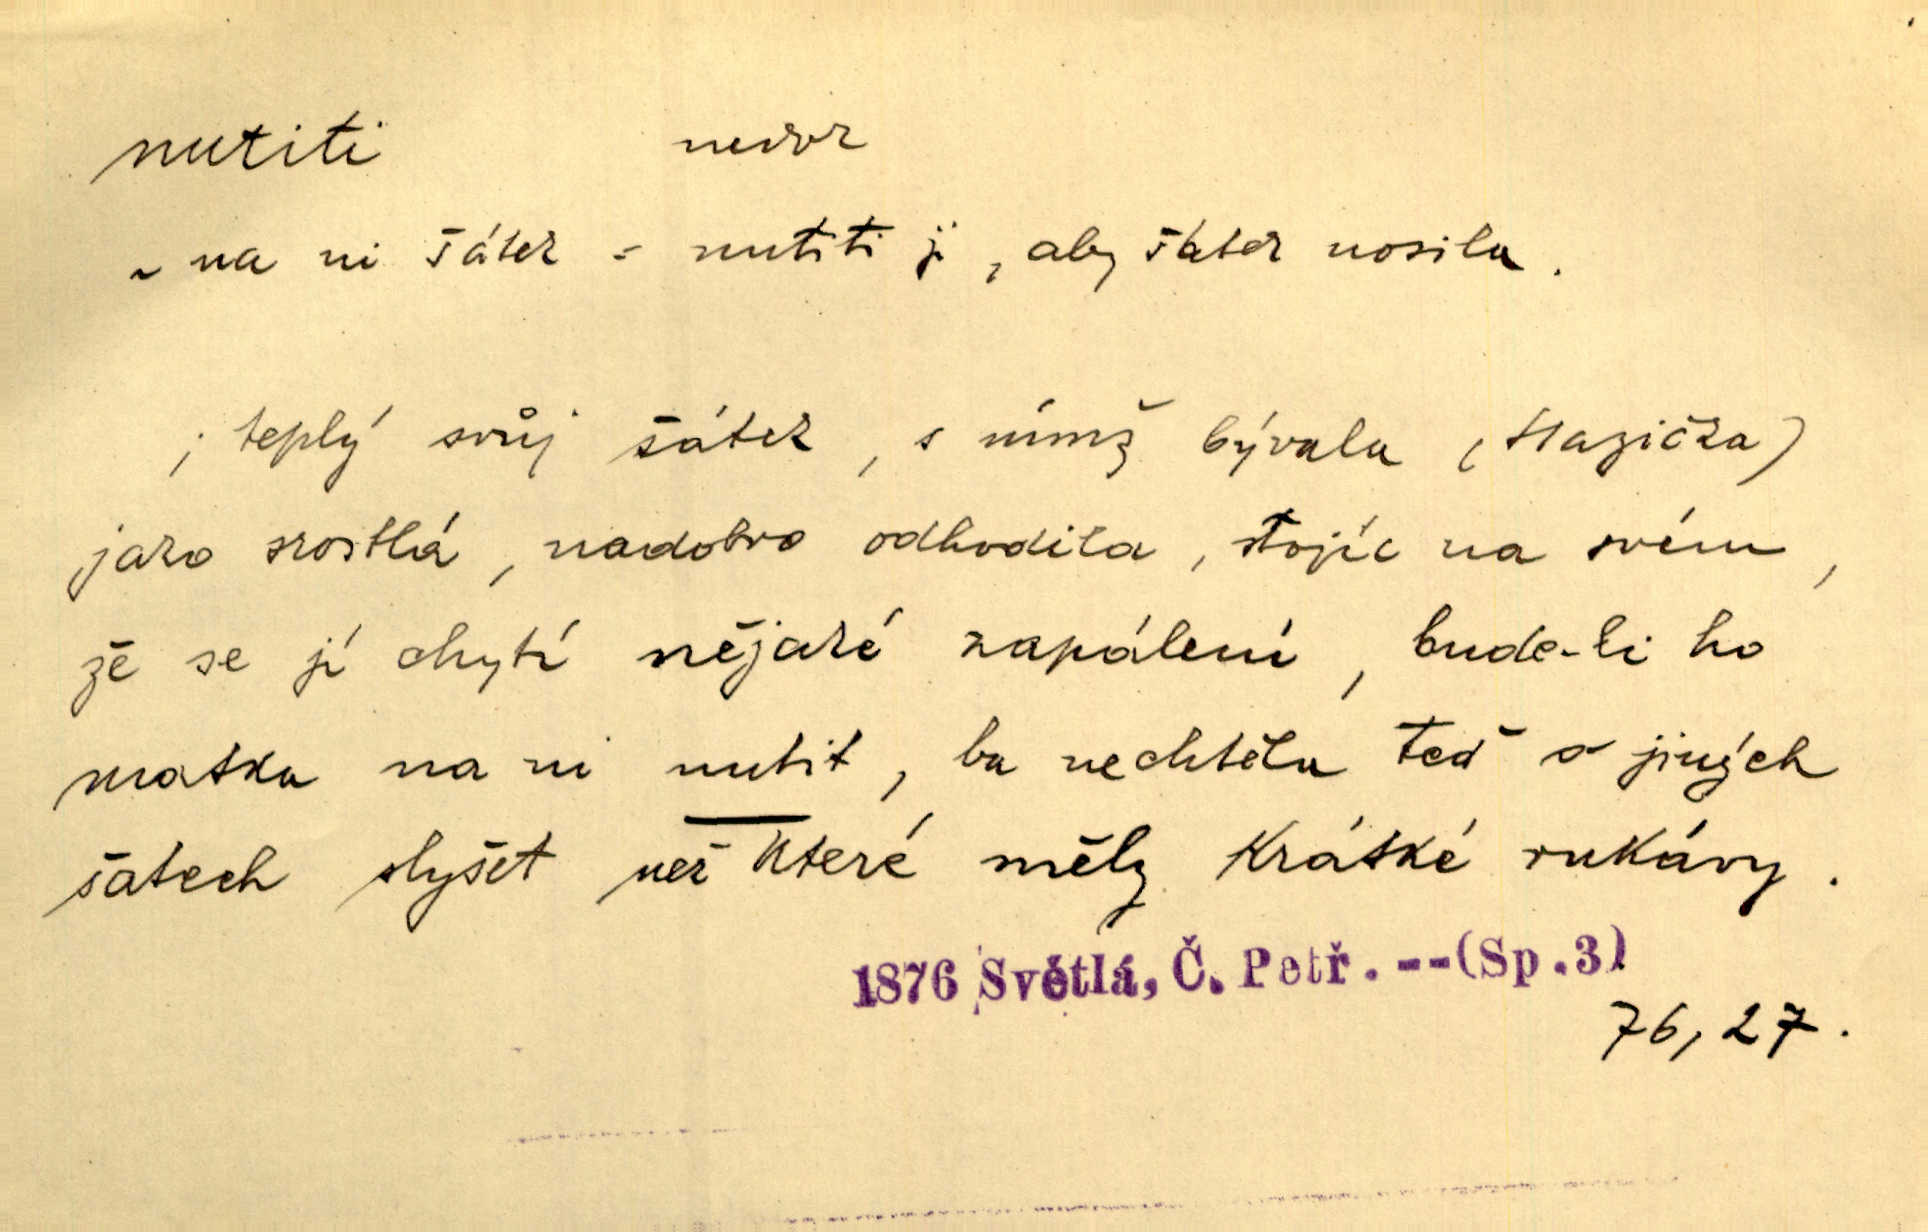 nutiti nedok
~ na ni šátek = nutiti ji, aby šátek nosila.
; teplý svůj šátek, s nímž bývala (Hazička)
jako srostlá, nadobro odhodila, stojíc na svém,
že se jí chytí nějaké zapálení, bude-li ho
matka na ni nutit, ba nechtěla teď o jiných
šatech slyšet než které měly krátké rukávy.
1876 Světlá, Č. Petř. --(Sp.3)
76,27.